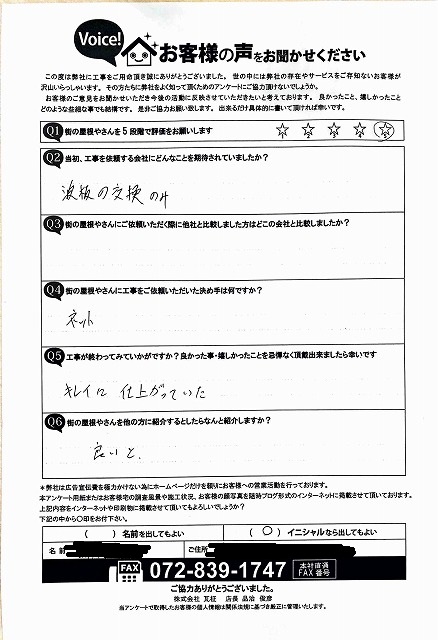 Voice! お客様の声をお聞かせください
この度は弊社に工事をご用命頂き誠にありがとうございました。世の中には弊社の存在やサービスをご存知ないお客様が
沢山いらっしゃいます。その方たちに弊社をよく知って頂くためのアンケートにご協力頂けないでしょうか。
お客様のご意見をお聞かせいただき今後の活動に反映させていただきたいと考えております。良かったこと、嬉しかったこと
どのような些細な事でも結構です。是非ご協力お願い致します。出来るだけ具体的に書いて頂ければ幸いです。
Q1 街の屋根やさんを5段階で評価をお願いします 1 2 3 4 5
Q2 当初、工事を依頼する会社にどんなことを期待されていましたか?
波板の交換のみ
Q3 街の屋根やさんにご依頼いただく際に他社と比較しました方はどこの会社と比較しましたか?
Q4 街の屋根やさんに工事をご依頼いただいた決め手は何ですか?
ネット
Q5 工事が終わってみていかがですか?良かった事・嬉しかったことを忌憚なく頂戴出来ましたら幸いです
キレイに仕上がっていた
Q6 街の屋根やさんを他の方に紹介するとしたらなんと紹介しますか?
良いと、
*弊社は広告宣伝費を極力かけない為にホームページだけを頼りにお客様への営業活動を行っております。
本アンケート用紙またはお客様宅の調査風景や施工状況、お客様の顔写真を随時ブログ形式のインターネットに掲載させて頂いております。
上記内容をインターネットや印刷物に掲載させて頂いてもよろしいでしょうか?
下記の中から〇印をお付下さい。
( )名前を出してもよい (〇)イニシャルなら出してもよい
名前 ご住所
FAX 072-839-1747 本社直通FAX番号
ご協力ありがとうございました。
株式会社 瓦柾 店長 品治 俊彦
当アンケートで取得したお客様の個人情報は関係法規に基づき厳正に管理いたします。